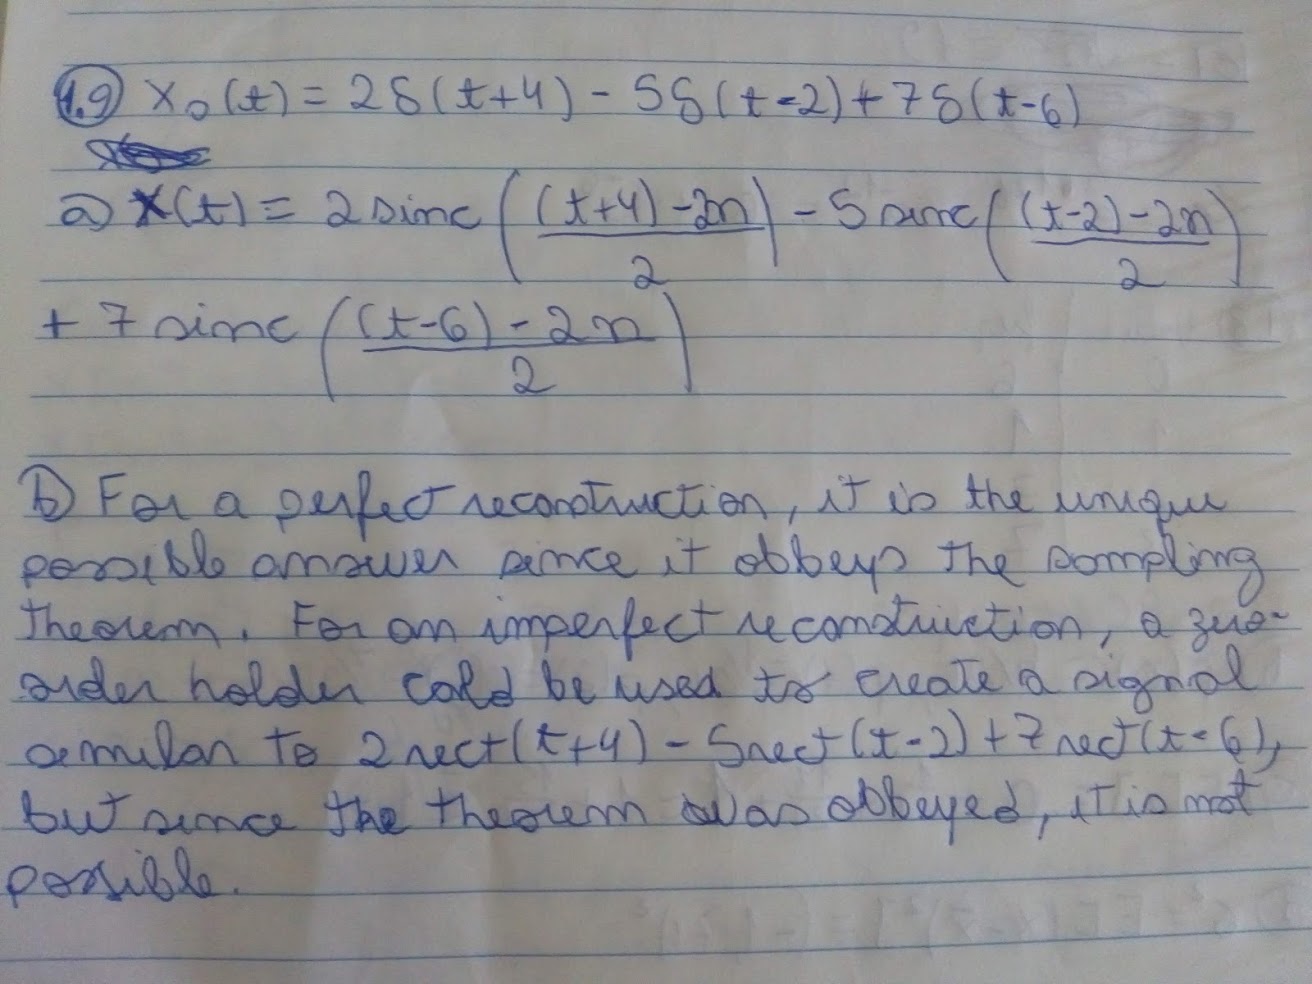 1.9) x₀(t) = 2δ(t+4) - 5δ(t-2) + 7δ(t-6)
a) x(t) = 2 sinc (((t+4) - 2n)/2) - 5 sinc (((t-2) - 2n)/2)
+ 7 sinc (((t-6) - 2n)/2)
b) For a perfect reconstruction, it is the unique
possible answer since it obbeys the sampling
theorem. For an imperfect reconstruction, a zero-
order holder cold be used to create a signal
similar to 2 rect(t+4) - 5 rect(t-2) + 7 rect(t-6),
but since the theorem was obbeyed, it is not
possible.